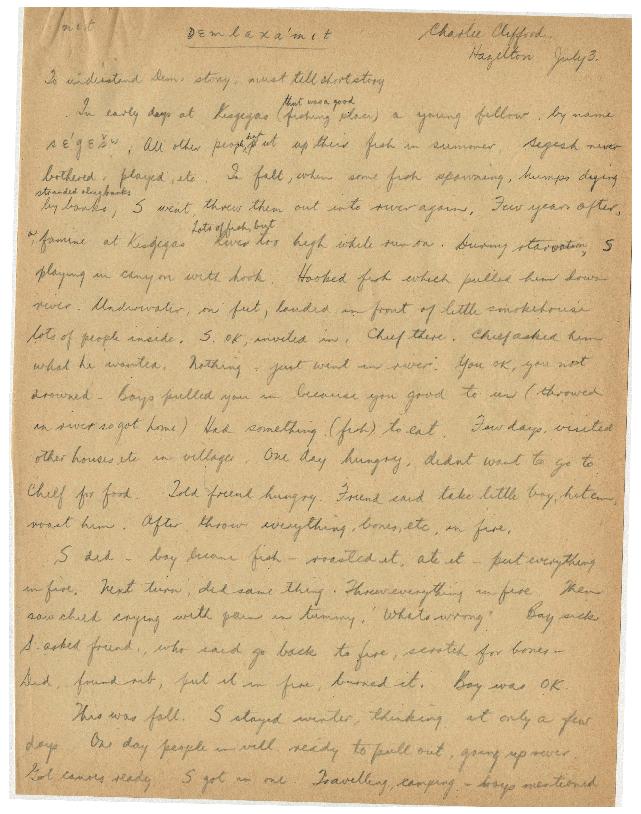 Demlaxa'mit
Charlie Clifford
Hazelton July 3.
To understand Dem. story - must tell short story
that was a good
In early days at Kisgegas (fishing place) a young fellow, by name
. All other people, but put up their fish in summer, Segesh never
bothered, played, etc. In fall, when some fish spawning, humps dying
stranded along banks
by banks, S went, threw them out into river again. Few years after,
Lots of fish, but
a famine at Kisgegas River too high while run on. During starvation, S
playing in canyon with hook. Hooked fish which pulled him down
river. Underwater, on feet, landed in front of little smokehouse
lots of people inside. S. OK, invited in. Chief there. Chief asked him
what he wanted. Nothing - just went in river. You OK, you not
drowned - boys pulled you in because you good to us (throwed
in river so got home) Had something (fish) to eat. Few days, visited
other houses, etc in village. One day hungry, didnt want to go to
Chief for food. Told friend hungry. Friend said take little boy, hit em,
roast him. After throw everything, bones, etc, in fire.
S did - boy became fish - roasted it, ate it - put everything
in fire. Next turn, did same thing. Threw everything in fire Then
saw child crying with pain in tummy. 'Whats wrong' Boy sick
S. asked friend, who said go back to fire, scratch for bones -
Did, found rib, put it in fire, burned it. Boy was OK.
This was fall. S stayed winter, thinking it only a few
days One day people in vill. ready to pull out, going up river
Got canoes ready S got in one. Travelling, camping - boys mentioned